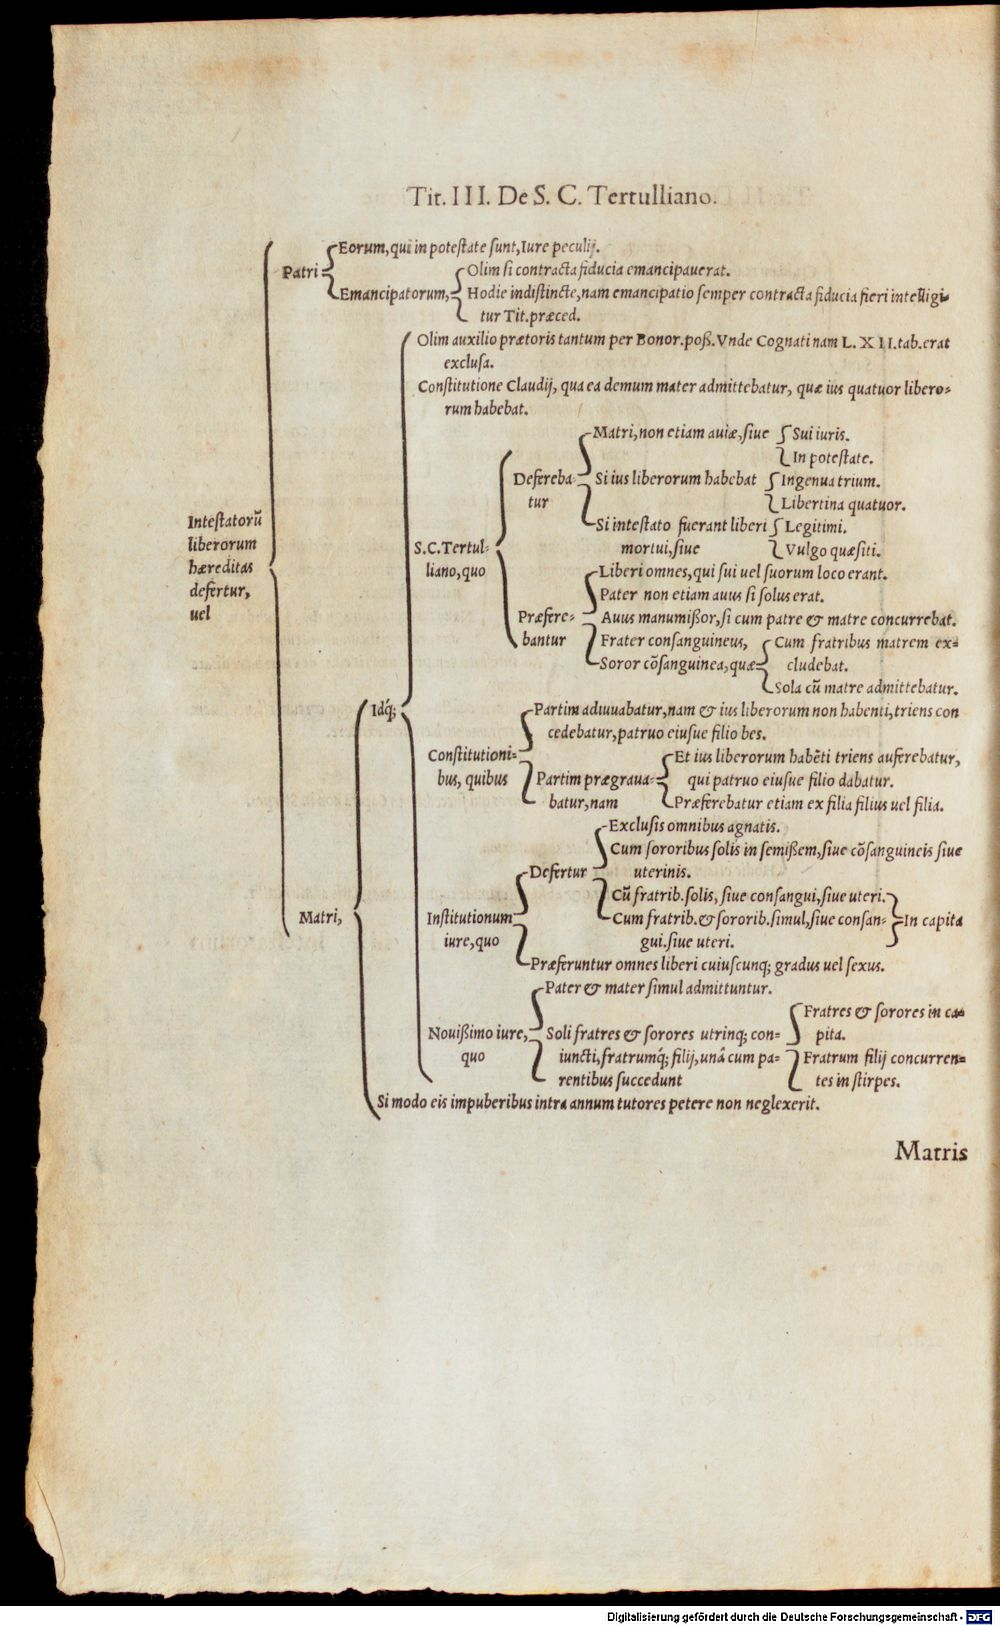 Tit. III. De S. C. Tertulliano.
Eorum, qui in potestate sunt, Iure peculij.
Patri
Olim si contracta fiducia emancipauerat.
Emancipatorum,
Hodie indistincte, nam emancipatio semper contracta fiducia fieri intelligi-
tur Tit. præced.
Olim auxilio prætoris tantum per Bonor. poß. Vnde Cognati nam L. XII. tab. erat
exclusa.
Constitutione Claudij, qua ea demum mater admittebatur, quæ ius quatuor libero-
rum habebat.
Matri, non etiam auiæ, siue
Sui iuris.
In potestate.
Defereba-
tur
Si ius liberorum habebat
Ingenua trium.
Libertina quatuor.
Intestatorũ
liberorum
hæreditas
defertur,
uel
Si intestato fuerant liberi
mortui, siue
Legitimi.
Vulgo quæsiti.
S. C. Tertul-
liano, quo
Liberi omnes, qui sui uel suorum loco erant.
Pater non etiam auus si solus erat.
Præfere-
bantur
Auus manumißor, si cum patre & matre concurrebat.
Frater consanguineus,
Soror cõsanguinea, quæ
Cum fratribus matrem ex-
cludebat.
Sola cũ matre admittebatur.
Idq́;
Partim adiuuabatur, nam & ius liberorum non habenti, triens con
cedebatur, patruo eiusue filio bes.
Constitutioni-
bus, quibus
Partim prægraua-
batur, nam
Et ius liberorum habẽti triens auferebatur,
qui patruo eiusue filio dabatur.
Præferebatur etiam ex filia filius uel filia.
Exclusis omnibus agnatis.
Cum sororibus solis in semißem, siue cõsanguineis siue
uterinis.
Defertur
Cũ fratrib. solis, siue consangui, siue uteri.
Cum fratrib. & sororib. simul, siue consan-
gui. siue uteri.
In capita
Matri,
Institutionum
iure, quo
Præferuntur omnes liberi cuiuscunq; gradus uel sexus.
Pater & mater simul admittuntur.
Nouißimo iure,
quo
Soli fratres & sorores utrinq; con-
iuncti, fratrumq́; filij, unâ cum pa-
rentibus succedunt
Fratres & sorores in ca-
pita.
Fratrum filij concurren-
tes in stirpes.
Si modo eis impuberibus intra annum tutores petere non neglexerit.
Matris
Digitalisierung gefördert durch die Deutsche Forschungsgemeinschaft - DFG